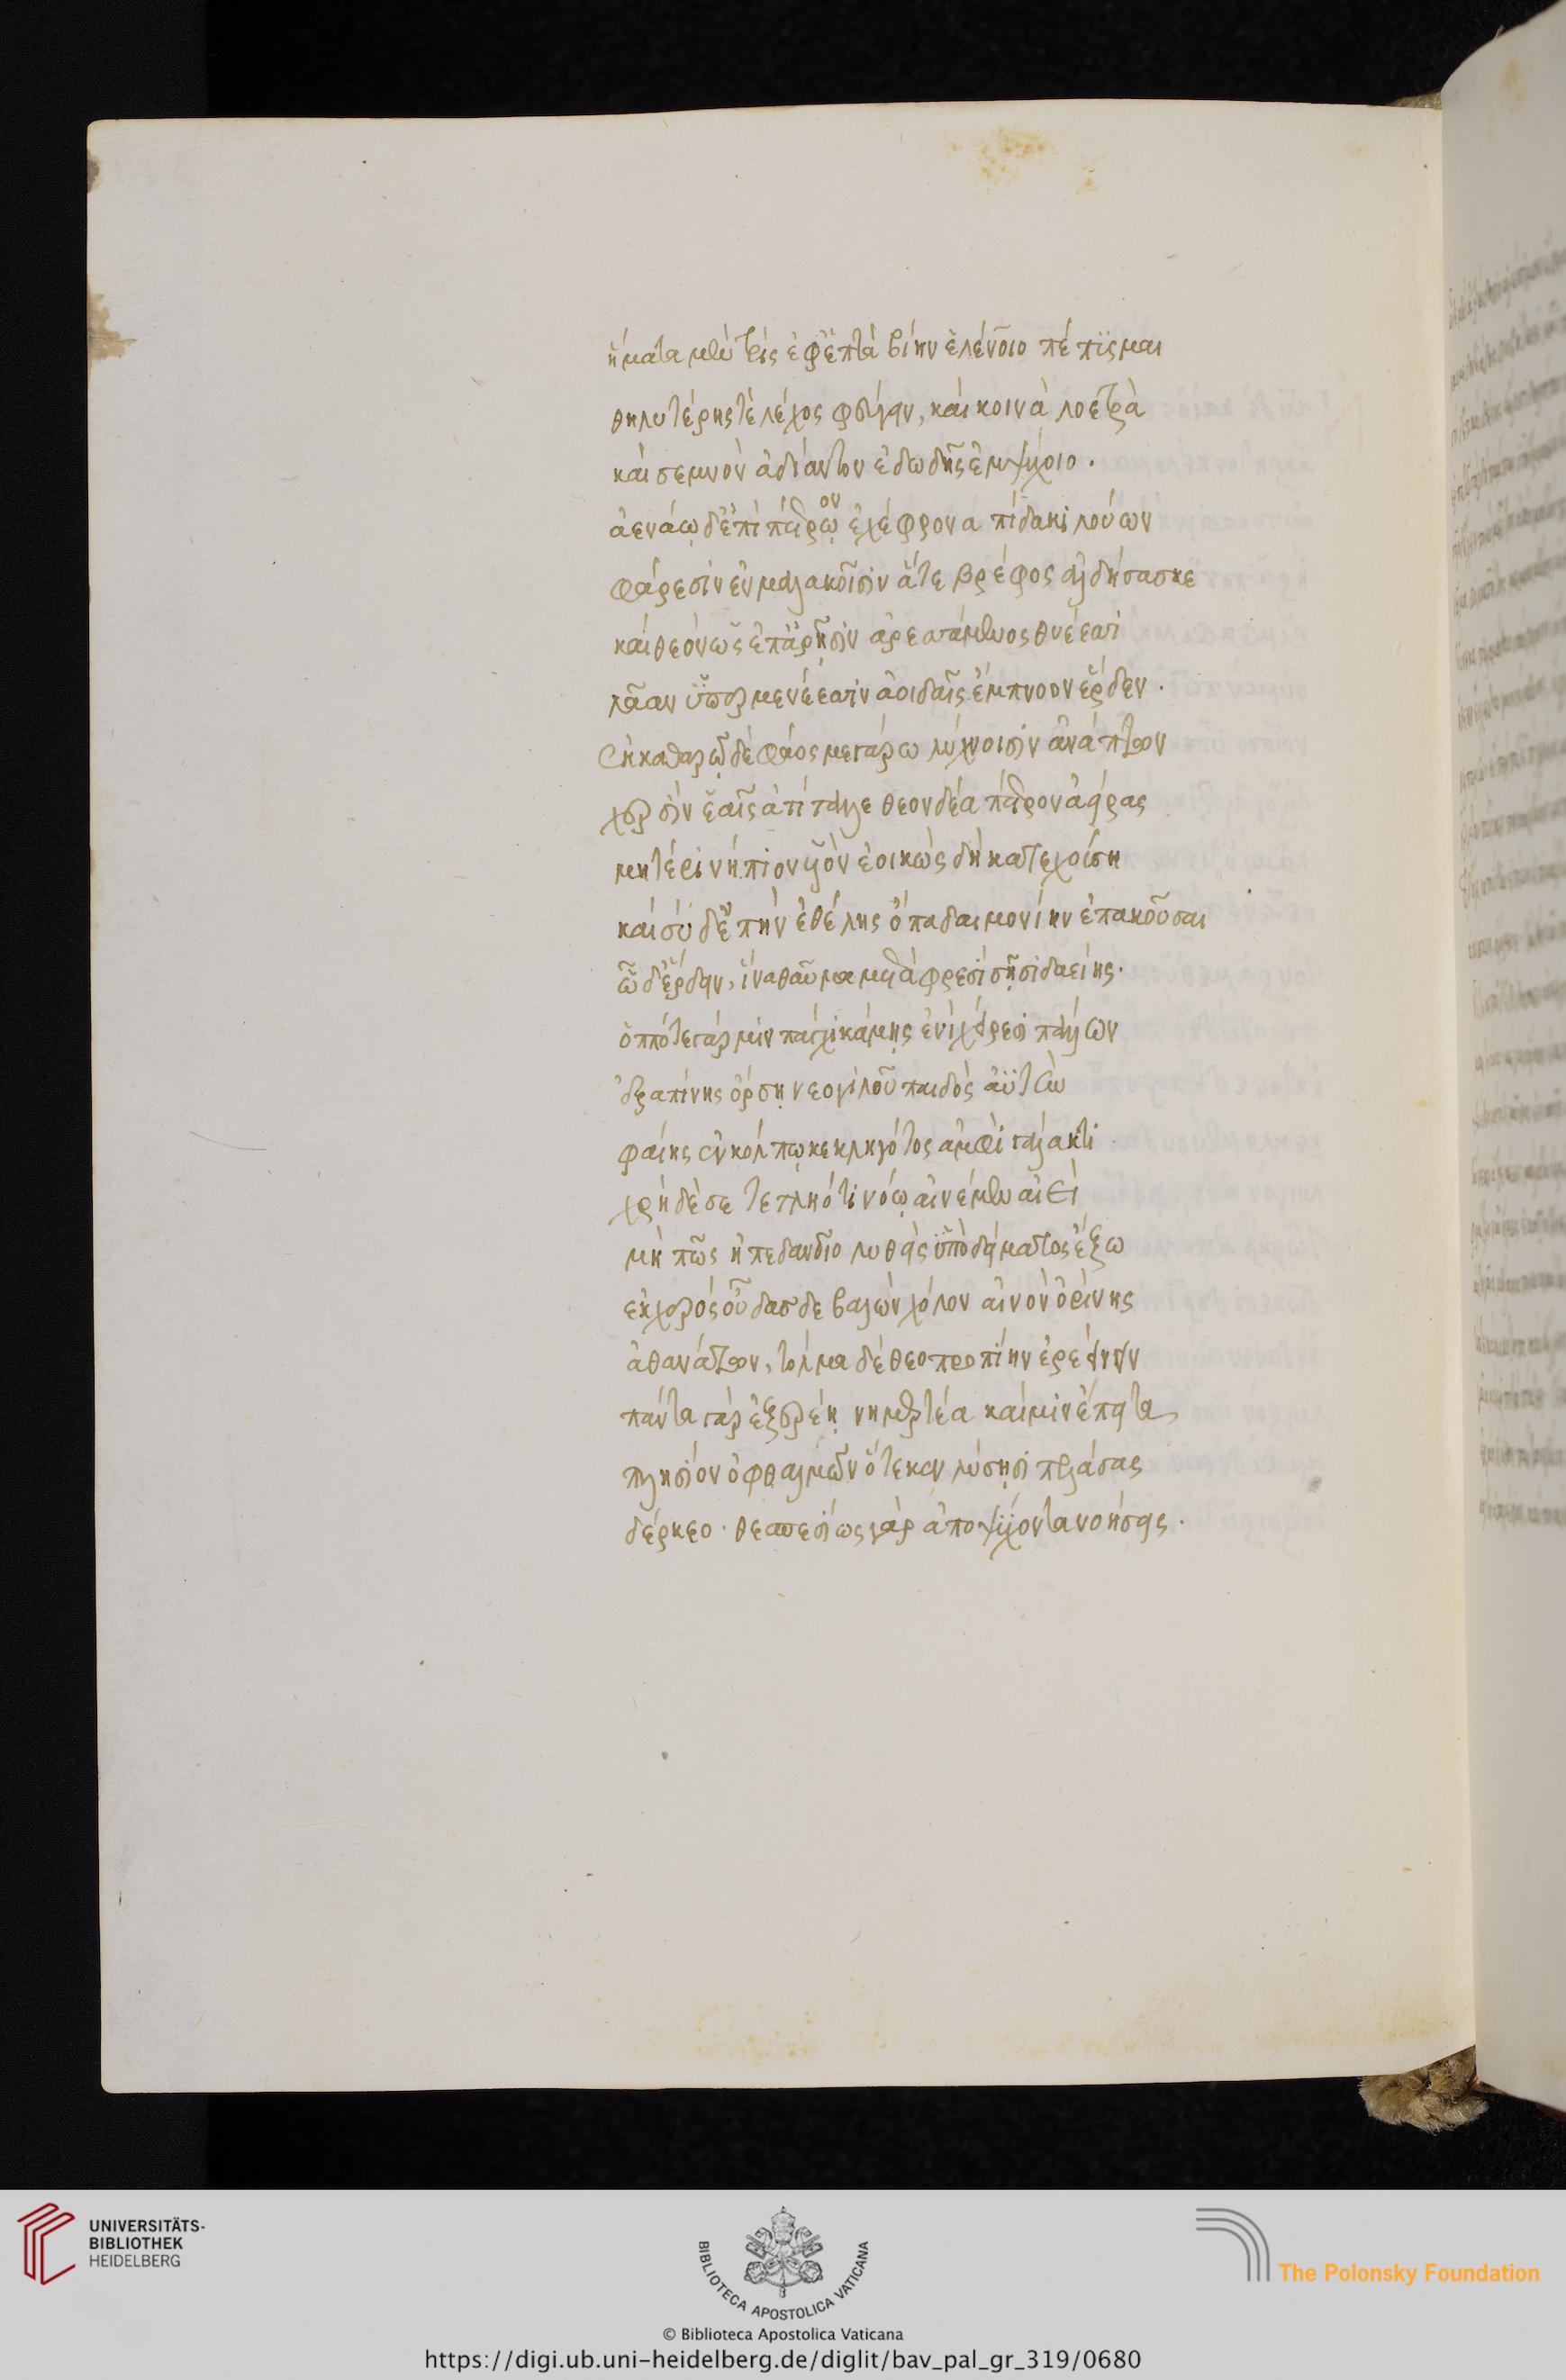 ἤματα μὲν τρὶς ἐφ' ἑπτὰ βίην ἑλένοιο πέπυσμαι
θηλυτέρης τὲ λέχος φεύγειν, καὶ κοινὰ λοετρὰ
καὶ σεμνὸν ἀδίαντον ἐδωδῆς ἐμψύχοιο.
ἀενάῳ δ' ἐπὶ πέτρῳον ἐχέφρονα πίδακι λούων
φάρεσιν ἐν μαλακοῖσιν ἅτε βρέφος ἀλδήσασκε
καὶ θεόν ὡς ἐπ' ἀρῇσιν ἀρεσσάμενος θυέεσσι
λᾶαν ὑπερμενέεσσιν ἀοιδαῖς ἔμπνοον ἔρδεν.
ἐν καθαρῷ δὲ φάος μεγάρω λύχνοισιν ἀνάπτων
χερσὶν ἑαῖς ἀτίταλλε θεουδέα πέτρον ἀείρας
μητέρι νήπιον υἱὸν ἐοικὼς δὴ κατεχούση
καὶ σύ δ' ἐπὴν ἐθέλης ὄπα δαιμονίην ἐπακοῦσαι
ὧδ' ἔρδειν, ἵνα θαῦμα μετὰ φρεσὶ σῇσι δαείης.
ὁππότε γάρ μιν πάγχυ κάμῃς ἐνὶ χείρεσι πάλλων
ἐξαπίνης ὄρσῃ νεογιλοῦ παιδὸς ἀϋτὴν
φαίης ἐν κόλπῳ κεκληγότος ἀμφὶ γάλακτι
χρὴ δὲ σε τετληότι νόῳ αἰνέμεν αἰεὶ
μὴ πῶς ἠπεδανοῖο λυθεὶς ὑπὸ δείματος ἔξω
ἐκ χερὸς οὖδασδε βαλὼν χόλον αἰνὸν ὀρίνης
ἀθανάτων, τόλμα δὲ θεοπροπίην ἐρεείνειν
πάντα γὰρ ἐξερέῃ νημερτέα καὶ μιν ἔπειτα
πλησίον ὀφθαλμῶν ὅτε κεν λύσησι πελάσας
δέρκεο· θεσπεσίως γὰρ ἀποψύχοντα νοήσεις.
UNIVERSITÄTS-
BIBLIOTHEK
HEIDELBERG
BIBLIOTECA APOSTOLICA VATICANA
The Polonsky Foundation
© Biblioteca Apostolica Vaticana
https://digi.ub.uni-heidelberg.de/diglit/bav_pal_gr_319/0680